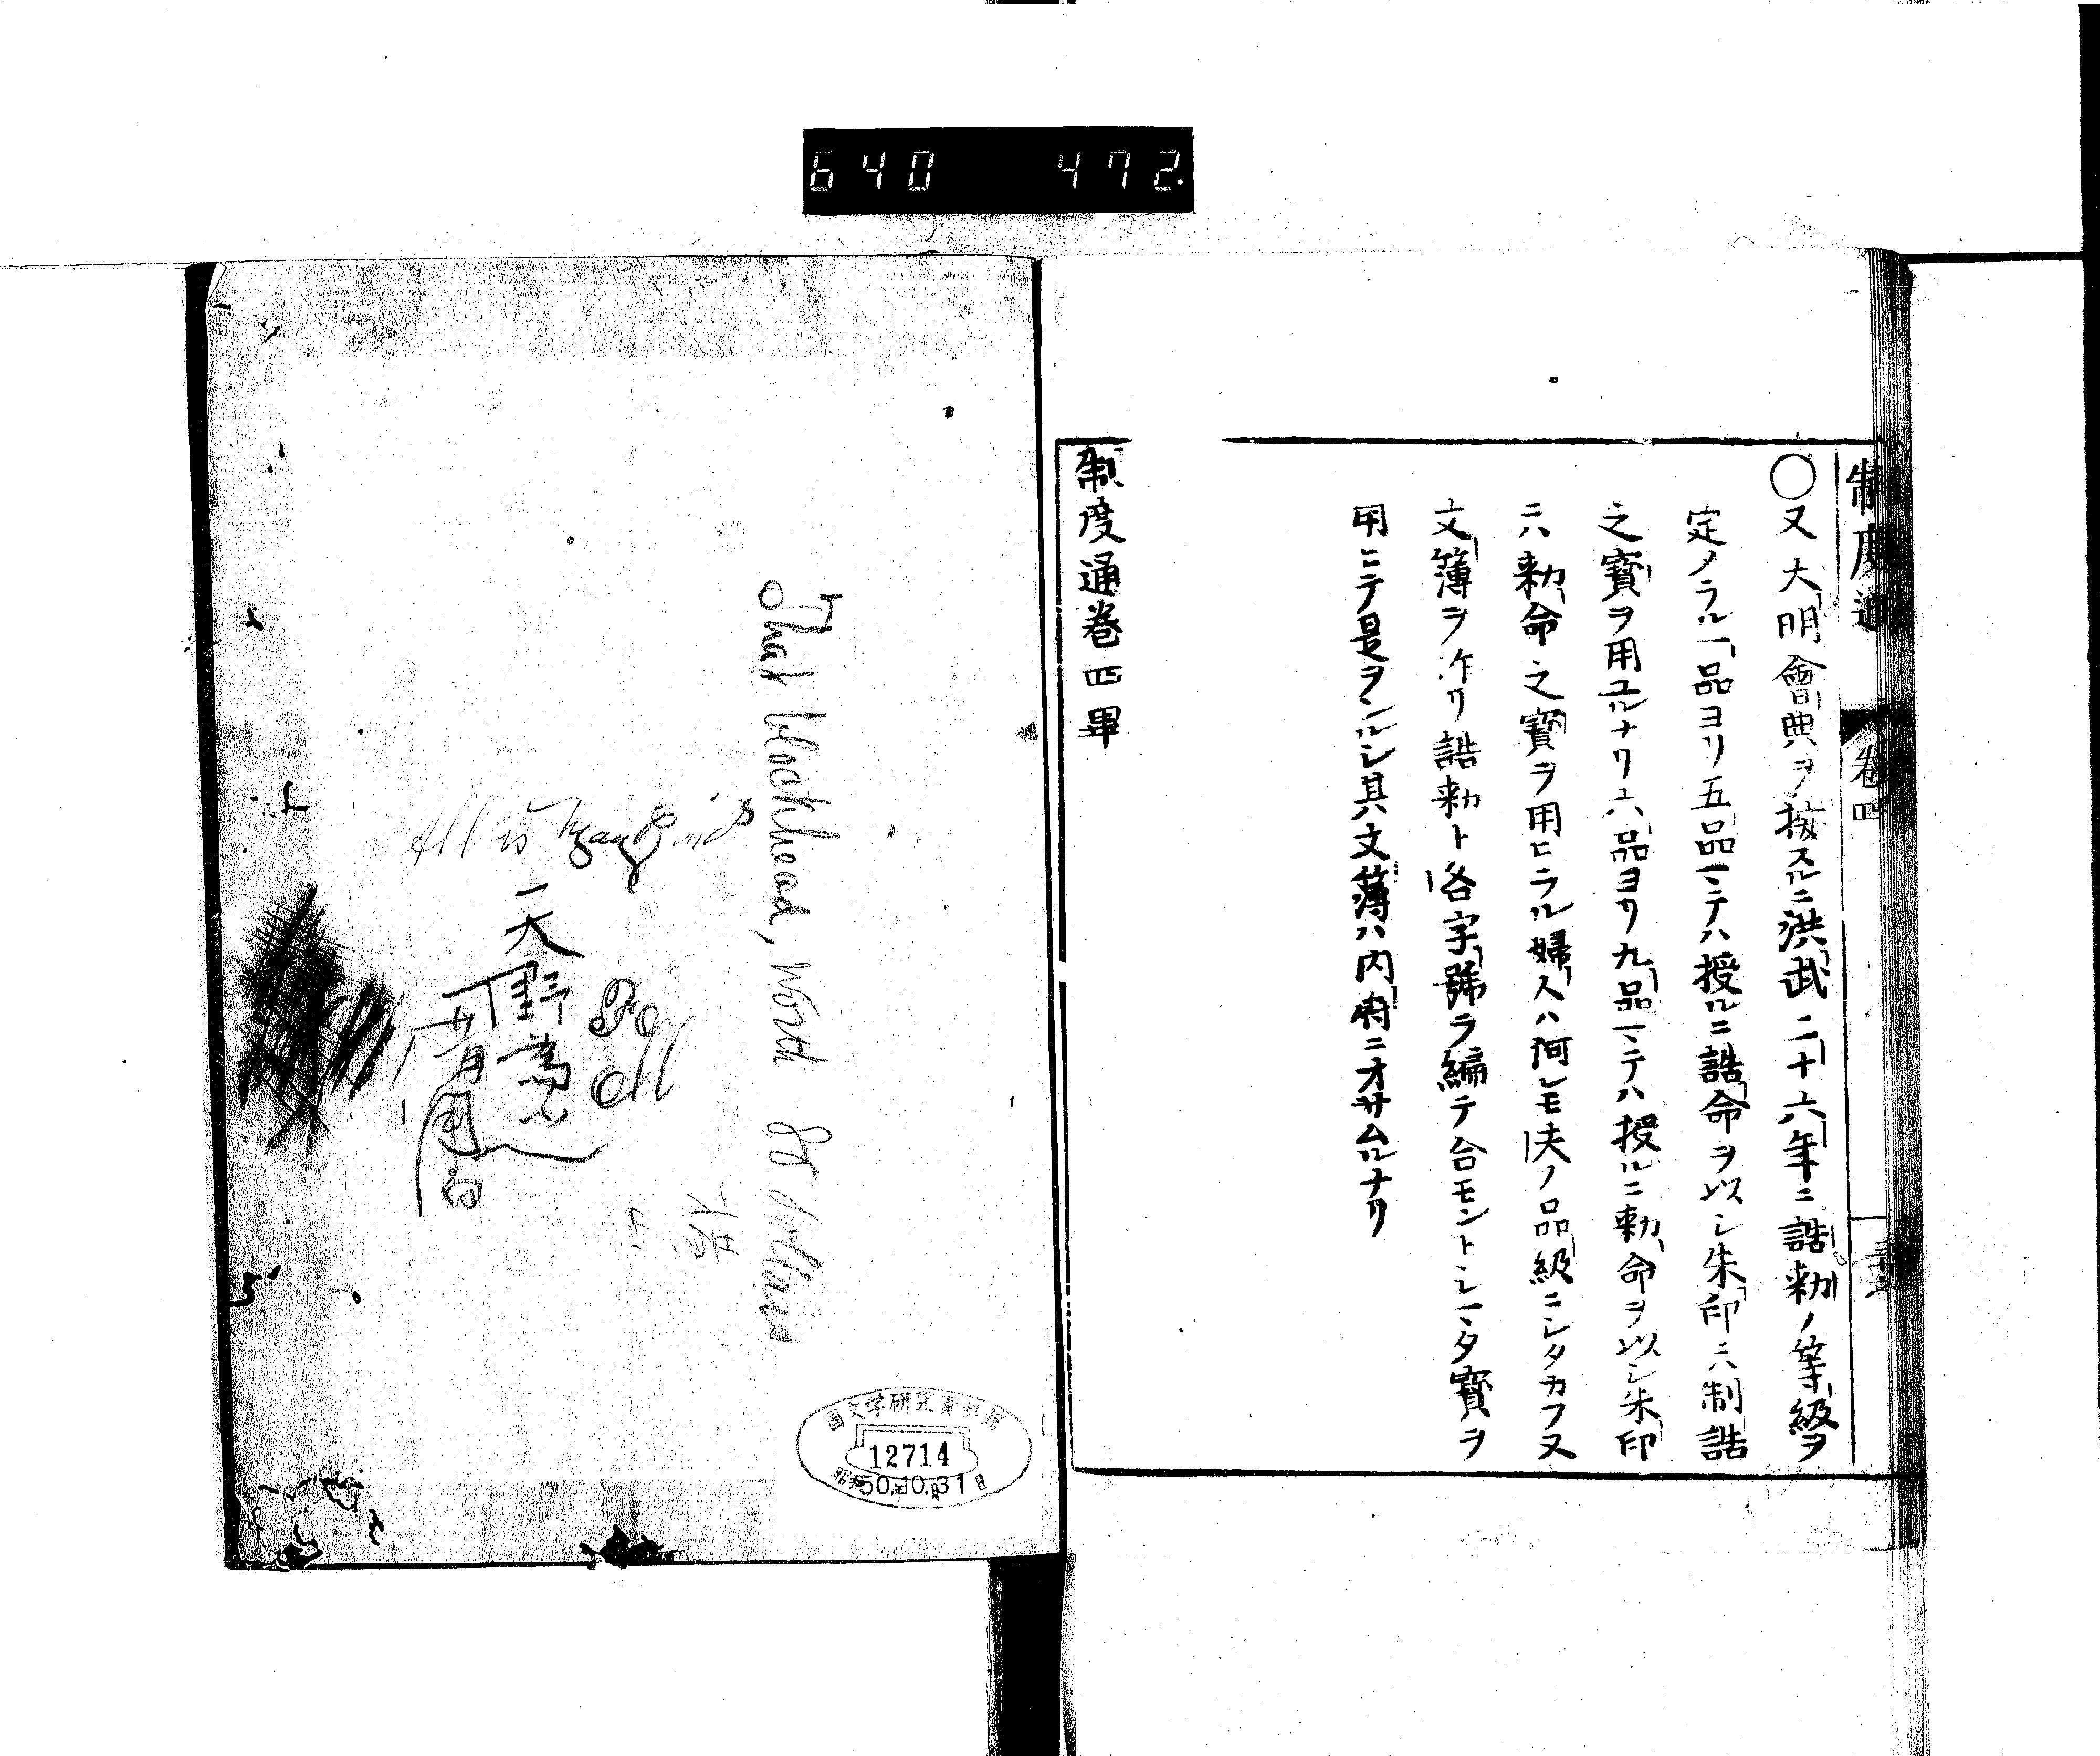 640 472.
制度通 卷四
〇又大明會典ヲ按スルニ洪武二十六年ニ誥勅ノ等級ヲ
定メラル一品ヨリ五品マテハ授ルニ誥命ヲ以シ朱印ニハ制誥
之寳ヲ用ユルナリ六品ヨリ九品マテハ授ルニ勅命ヲ以シ朱印
ニハ勅命之寳ヲ用ヒラル婦人ハ何レモ夫ノ品級ニシタカフ又
文簿ヲ作リ誥勅ト各字號ヲ編テ合モントシマタ寳ヲ
用ヒテ是ヲシルシ其文簿ハ内府ニオサムルナリ
制度通卷四畢
That blockhead, worth 80
All is
天野
国文学研究資料館
12714
昭和50年10月31日